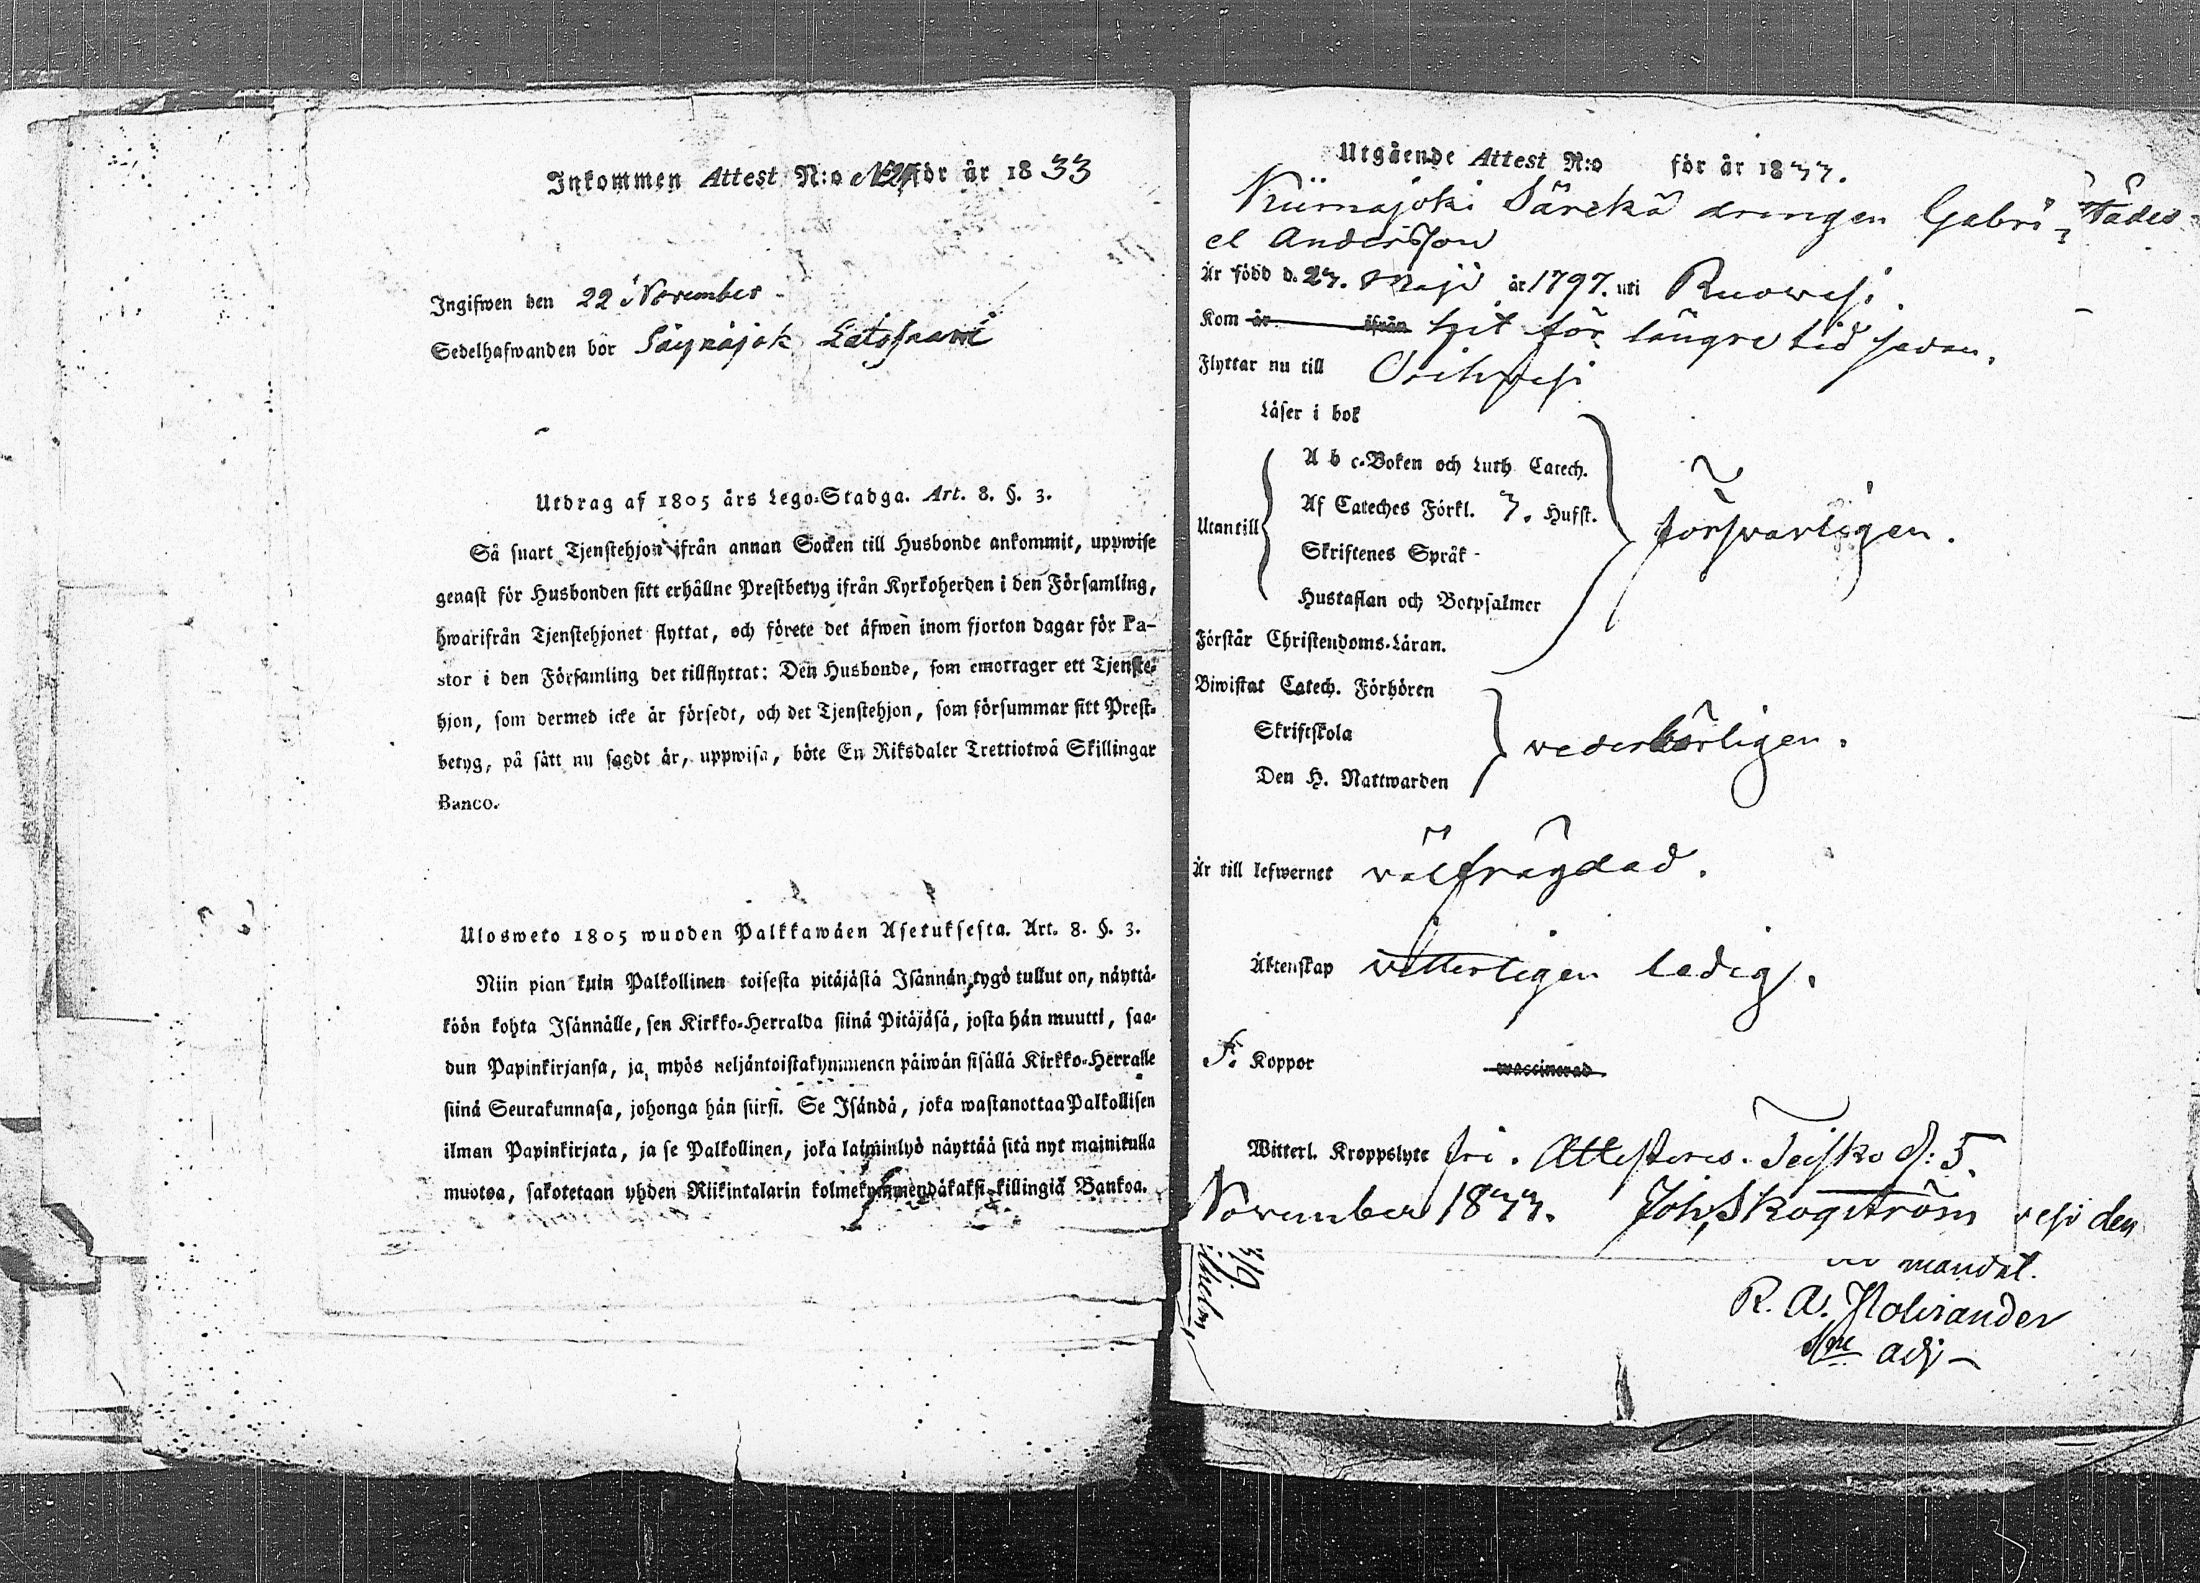 Inkommen Attest N:o för år 1833
Ingifwen den 22 November
Sedelhafwanden bor Säynäjok
Utdrag af 1805 års Lego-Stadga. Art. 8. §. 3.
Så snart Tjenstehjon ifrån annan Socken till Husbonde ankommit, uppwise
genast för Husbonden sitt erhållne Prestbetyg ifrån Kyrkoherden i den Församling,
hwarifrån Tjenstehjonet flyttat, och förete det äfwen inom fjorton dagar för Pa-
stor i den Församling det tillflyttat: Den Husbonde, som emottager ett Tjenste-
hjon, som dermed icke är försedt, och det Tjenstehjon, som försummar sitt Prest-
betyg, på sätt nu sagdt är, uppwisa, böte En Riksdaler Trettiotwå Skillingar
Banco.
Ulosweto 1805 wuoden Palkkawäen Asetuksesta. Art. 8. §. 3.
Niin pian kuin Palkollinen toisesta pitäjästä Isännän tygö tullut on, näyttä-
köön kohta Isännälle, sen Kirkko-Herralda siinä Pitäjäsä, josta hän muutti, saa-
dun Papinkirjansa, ja myös neljäntoistakymmenen päiwän sisällä Kirkko-Herralle
siinä Seurakunnasa, johonga hän siirsi. Se Isändä, joka wastanottaa Palkollisen
ilman Papinkirjata, ja se Palkollinen, joka laiminlyö näyttää sitä nyt mainitulla
muotoa, sakotetaan yhden Riikintalarin kolmekymmendäkaksi killingiä Bankoa.
Utgående Attest N:o för år 1833.
Kiimajoki Särckä drengen Gabri-
el Andersson
Är född d. 23. Maji år 1797. uti Ruowesi.
Kom år ifrån hit för längre tid sedan.
Flyttar nu till Orihwesi
Läser i bok
A b c-Boken och Luth Catech.
Af Cateches Förkl. 3. Hufst.
Utantill försvarligen.
Skriftenes Språk -
Hustaflan och Botpsalmer
Förstår Christendoms-Läran.
Biwistat Catech. Förhören
Skriftskola vederbörligen.
Den H. Nattwarden
Är till lefwernet välfrägdad.
Äktenskap vitterligen ledig.
F. Koppor waccinerad.
Witterl. Kroppslyte fri. Attesteras. Teisko d: 5.
November 1833. Joh. Skogström
wesi den
mandat.
R. A. Molisander
adj